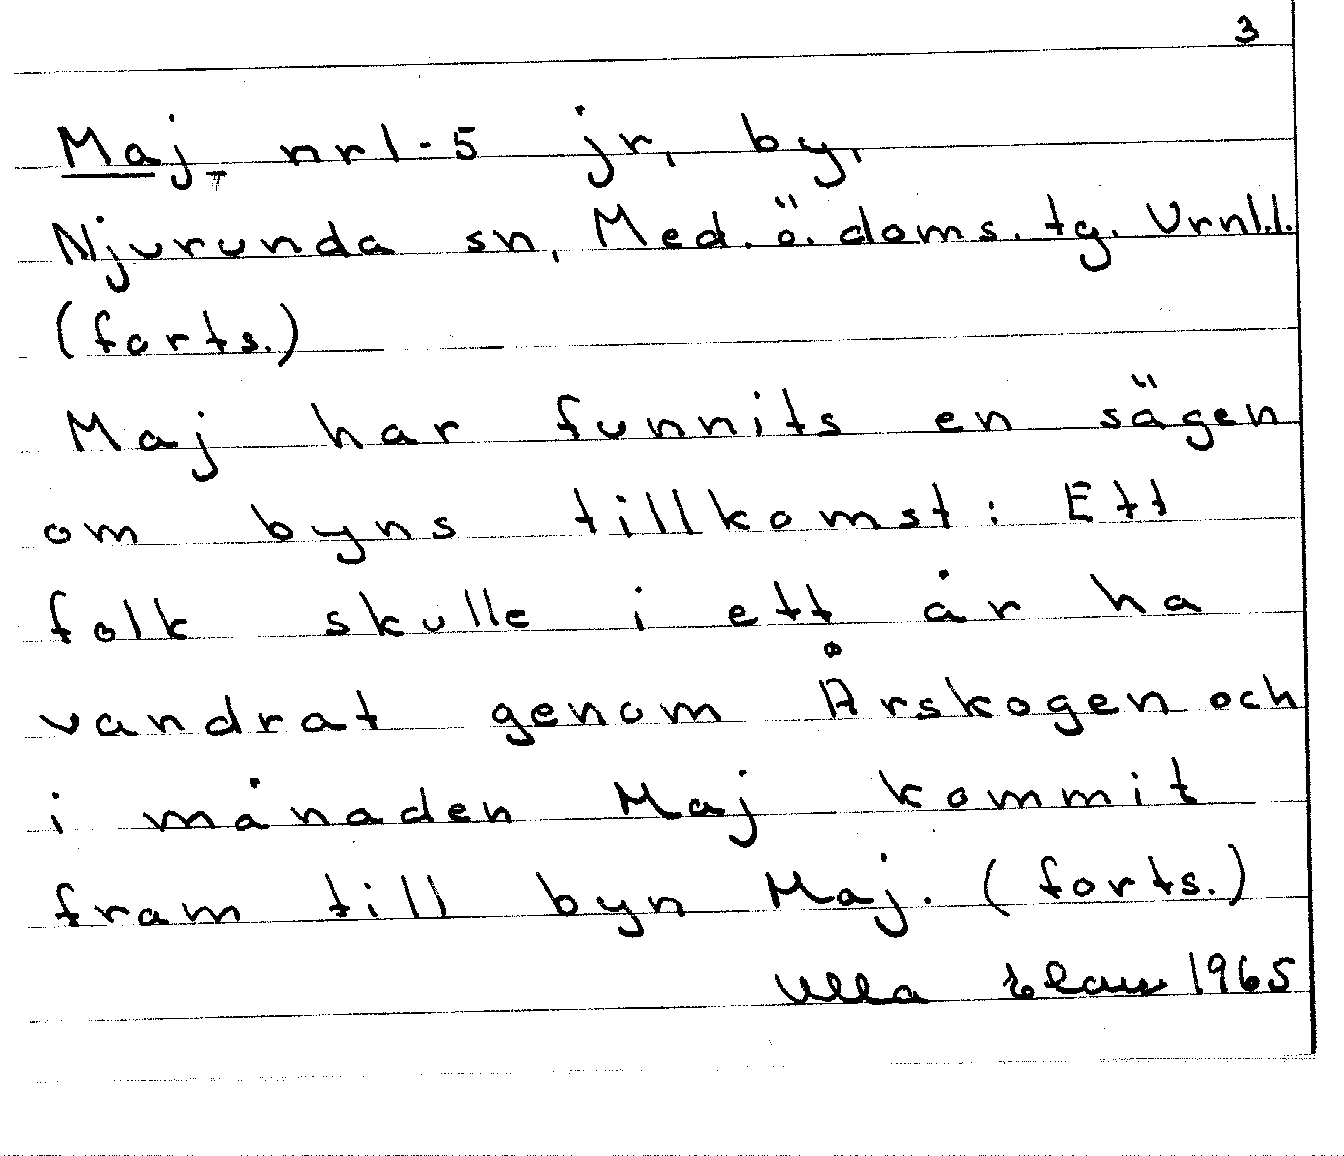 3
Maj, nr 1-5 jr, by,
Njurunda sn, Med. ö. doms. tg. Vrnl.l.
(forts.)
Maj har funnits en sägen
om byns tillkomst: Ett
folk skulle i ett år ha
vandrat genom Årskogen och
i månaden Maj kommit
fram till byn Maj. (forts.)
Ulla 1965